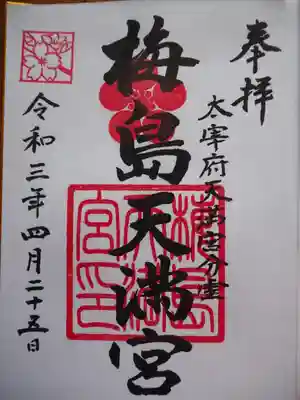 奉拝
太宰府天満宮分霊
梅島天満宮
令和三年四月二十五日
梅島天満宮印